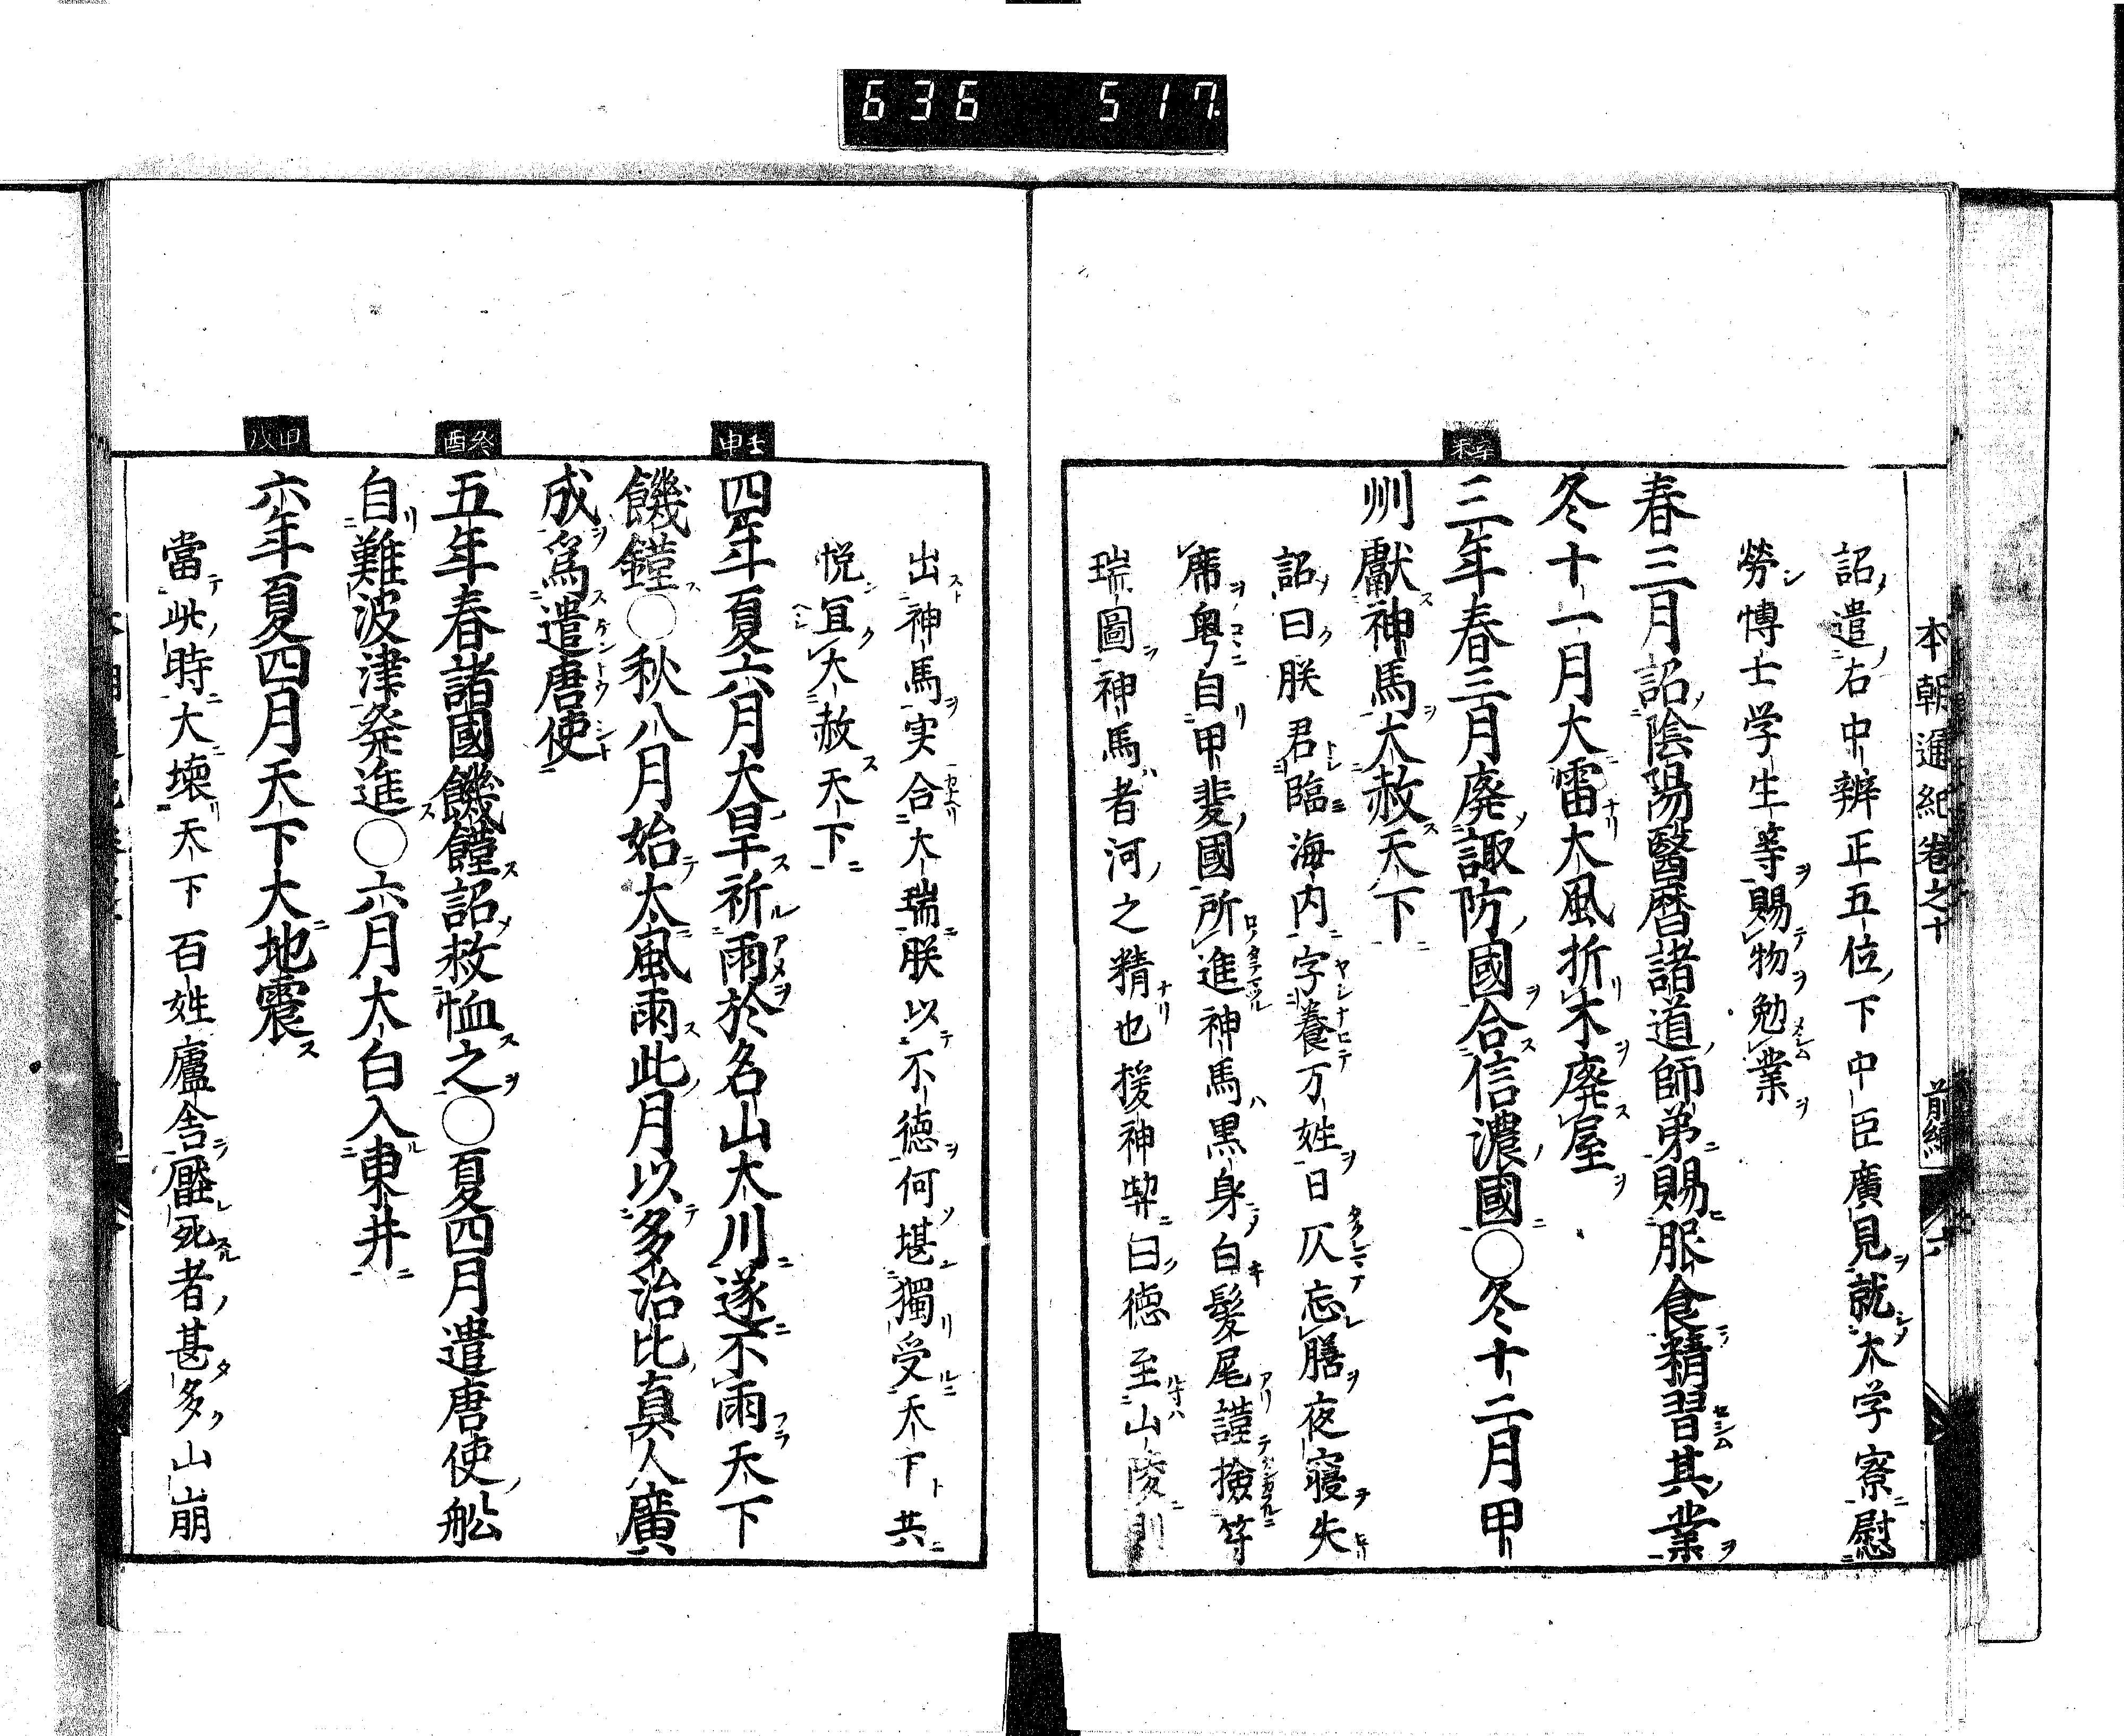 636 517
本朝通紀卷之十 前編
詔遣右中辨正五位下中臣廣見就大学寮慰
勞博士学生等賜物勉業
春三月詔陰陽醫暦諸道師弟賜服食精習其業
冬十一月大雷大風折木廃屋
辛未
三年春三月廃諏防國合信濃國○冬十二月甲
州獻神馬大赦天下
詔曰朕君臨海内字養万姓日仄忘膳夜寝失
席粤自甲斐國所進神馬黒身白髪尾謹撿符
瑞圖神馬者河之精也援神契曰徳至山陵則
出神馬実合大瑞朕以不徳何堪獨受天下共
悦宜大赦天下
壬申
四年夏六月大旱祈雨於名山大川遂不雨天下
饑饉○秋八月始大風雨此月以多治比真人廣
成爲遣唐使
癸酉
五年春諸國饑饉詔赦恤之○夏四月遣唐使舩
自難波津発進○六月太白入東井
六年夏四月天下大地震
當此時大壊天下百姓廬舎壓死者甚多山崩